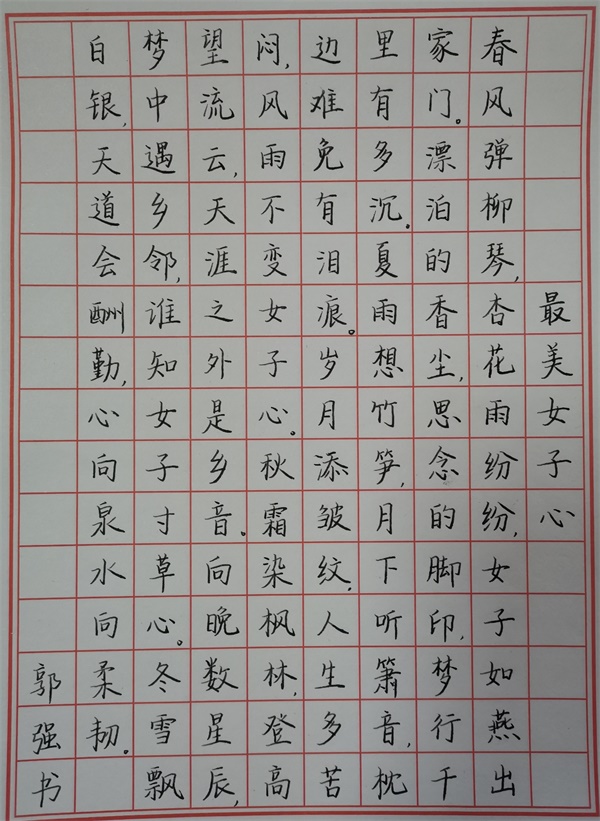 最美女子心
春风弹柳琴,杏花雨纷纷,女子如燕出
家门。漂泊的香尘,思念的脚印,梦行千
里有多沉。夏雨想竹笋,月下听箫音,枕
边难免有泪痕。岁月添皱纹,人生多苦
闷,风雨不变女子心。秋霜染枫林,登高
望流云,天涯之外是乡音。向晚数星辰,
梦中遇乡邻,谁知女子寸草心。冬雪飘
白银,天道会酬勤,心向泉水向柔韧。
郭强书